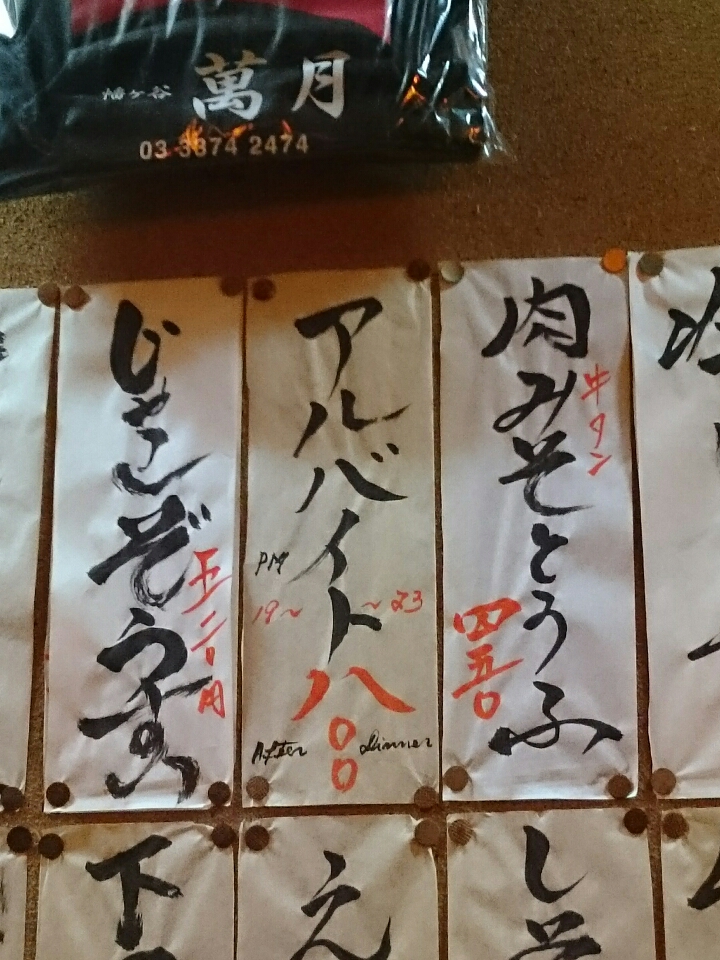 幡ヶ谷 萬月
03 3374 2474
肉みそとうふ
牛タン
四五〇
アルバイト八〇〇
PM
19~ ~23
After Dinner
じゃこぞうすい
五二〇円
下
え
しそ